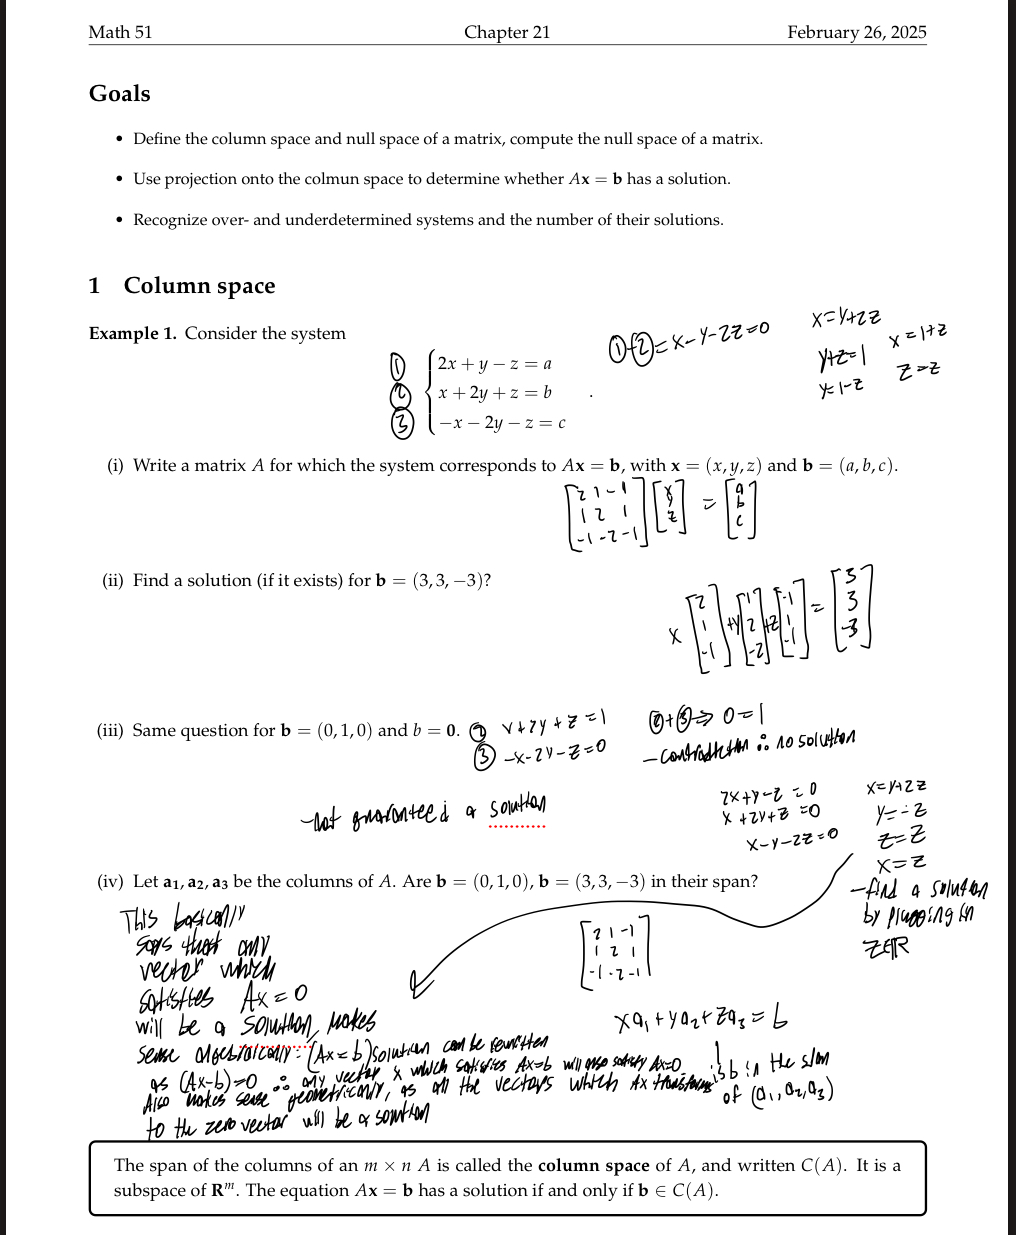 Math 51 Chapter 21 February 26, 2025
Goals
• Define the column space and null space of a matrix, compute the null space of a matrix.
• Use projection onto the colmun space to determine whether Ax = b has a solution.
• Recognize over- and underdetermined systems and the number of their solutions.
1 Column space
Example 1. Consider the system
① 2x + y − z = a
② x + 2y + z = b
③ −x − 2y − z = c
.
①-②=x-y-2z=0
x=y+2z
y+z=1
y=1-z
x=1+z
z=z
(i) Write a matrix A for which the system corresponds to Ax = b, with x = (x, y, z) and b = (a, b, c).
[2 1 -1] [x] = [a]
[1 2 1] [y] [b]
[-1 -2 -1] [z] [c]
(ii) Find a solution (if it exists) for b = (3, 3, −3)?
x[2 1 -1] +y[1 2 -2] +z[-1 1 -1] = [3 3 -3]
(iii) Same question for b = (0, 1, 0) and b = 0.
② x+2y+z=1
③ -x-2y-z=0
②+③⇒ 0=1
-contradiction ∴ no solution
-not guaranteed a solution
2x+y-z=0
x+2y+z=0
x-y-2z=0
x=y+2z
y=-z
z=z
x=z
-find a solution
by plugging in
z∈ℝ
(iv) Let a₁, a₂, a₃ be the columns of A. Are b = (0, 1, 0), b = (3, 3, −3) in their span?
This basically
says that any
vector which
satisfies Ax=0
will be a solution, makes
sense algebraically: (Ax=b) solution can be rewritten
as (Ax-b)=0 ∴ any vector x which satisfies Ax=b will also satisfy Ax=0
Also makes sense geometrically, as all the vectors which Ax transforms
to the zero vector will be a solution
[2 1 -1]
[1 2 1]
[-1 -2 -1]
xa₁+ya₂+za₃=b
is b in the span
of (a₁,a₂,a₃)
The span of the columns of an m × n A is called the column space of A, and written C(A). It is a
subspace of Rᵐ. The equation Ax = b has a solution if and only if b ∈ C(A).